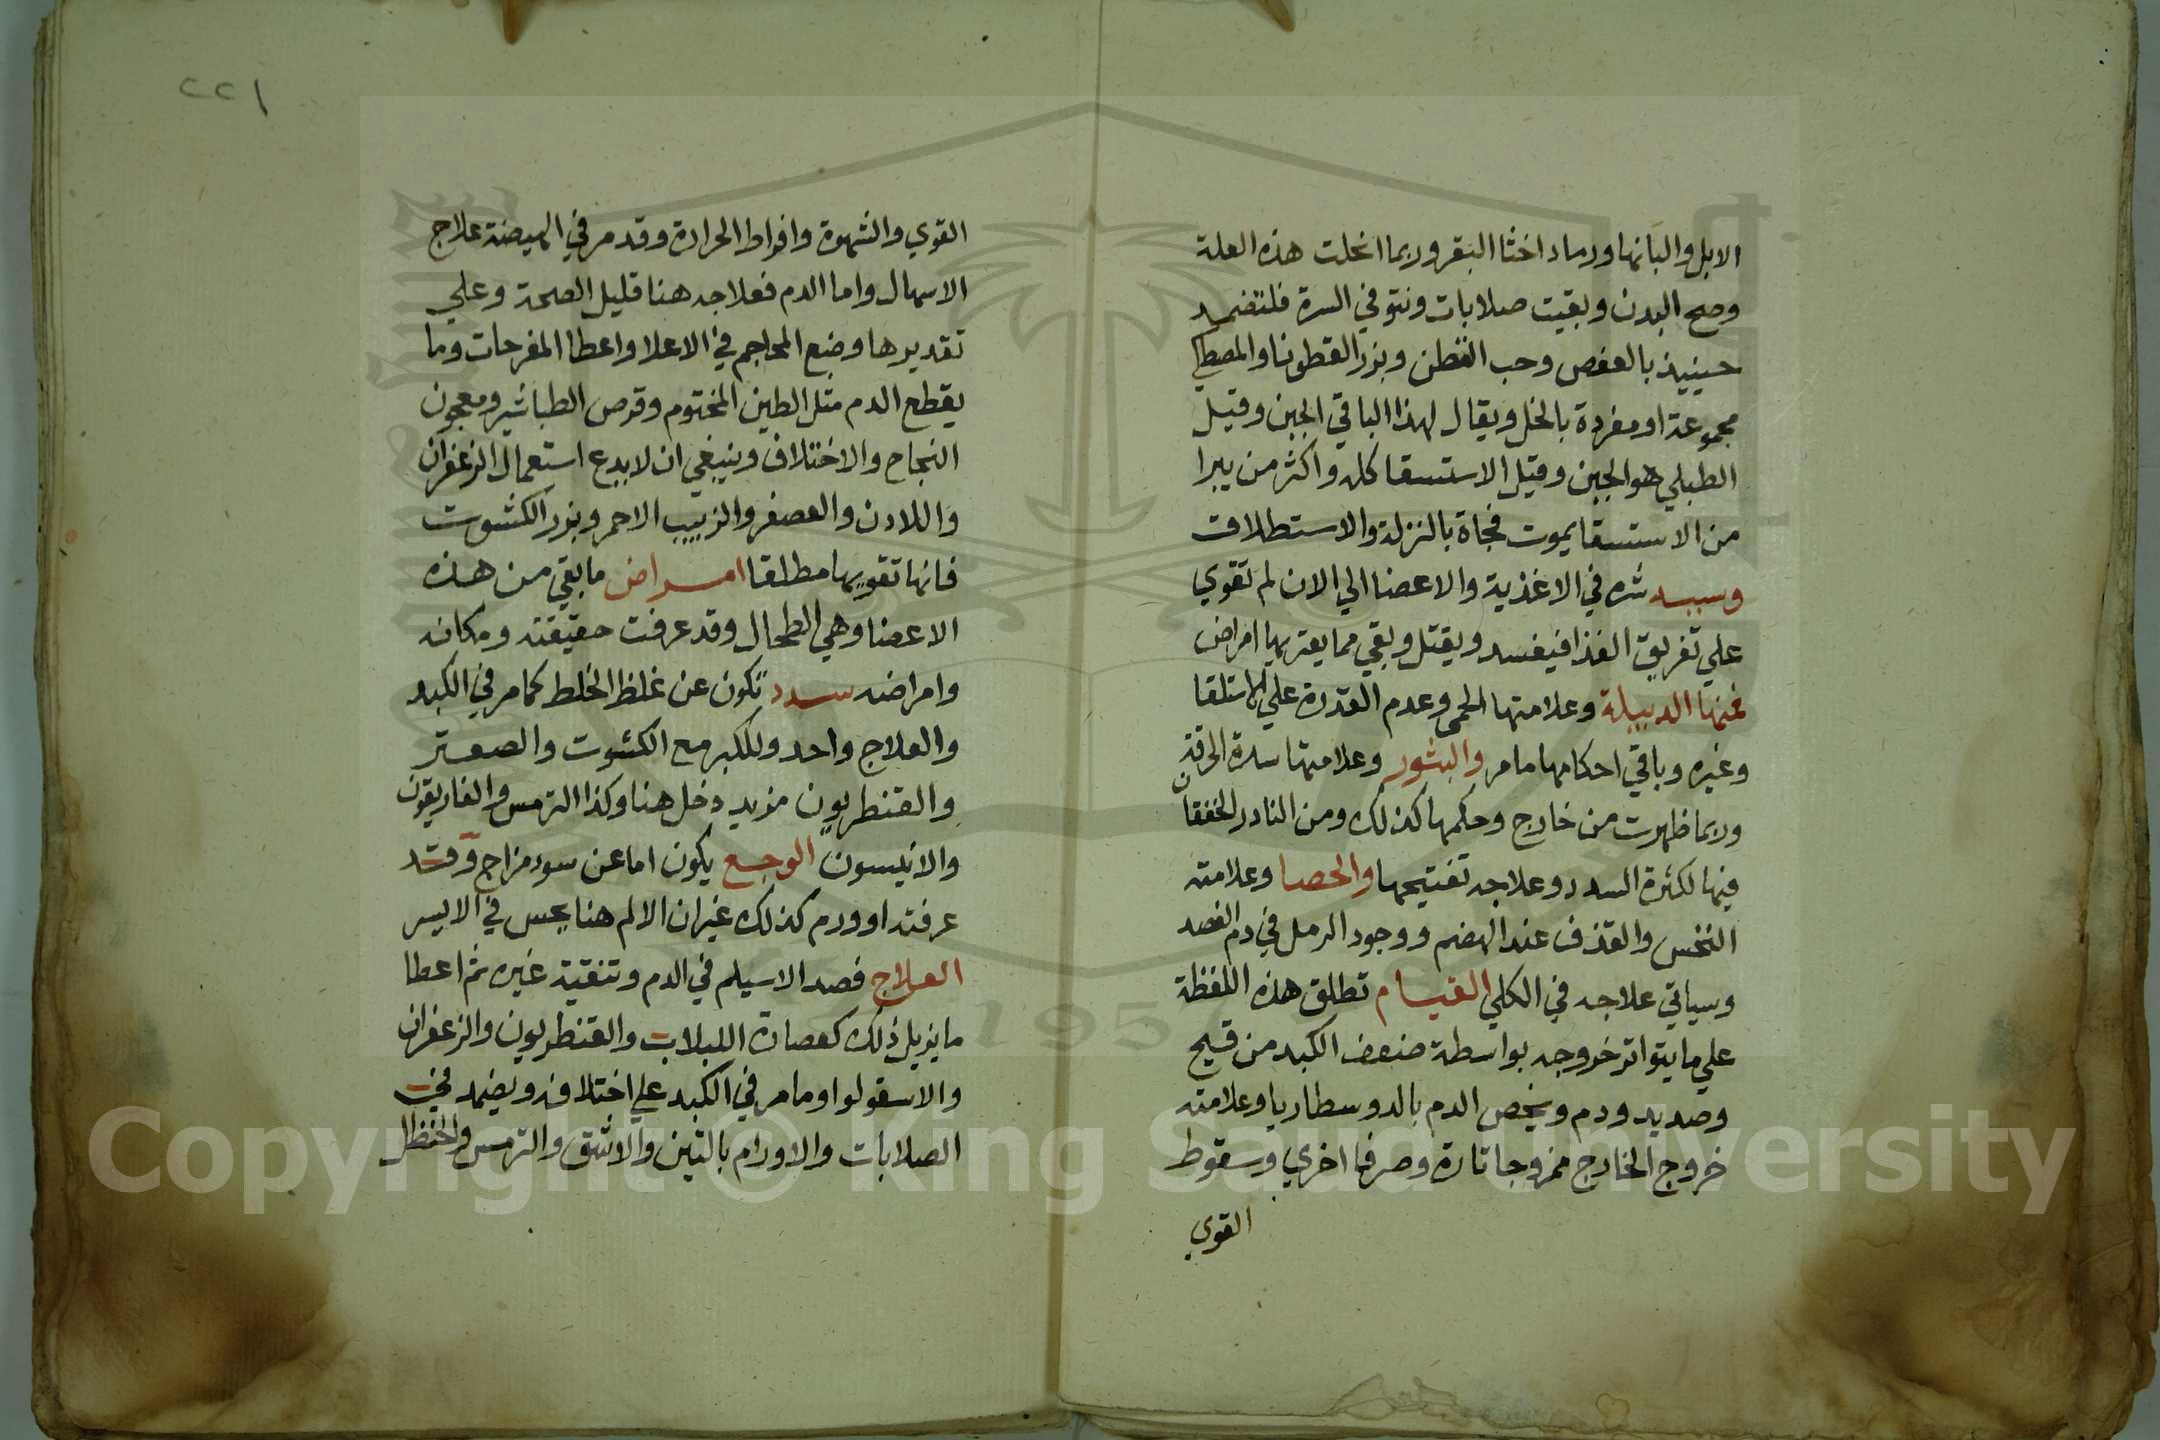 الابل والبانها ورماد اخثا البقر وربما انحلت هذه العلة
وصح البدن وبقيت صلابات ونتو في السرة فلتضمد
حينيذ بالعفص وحب القطن وبزر القطونا والمصطكي
مجموعة او مفردة بالخل ويقال لهذا الباقي الجبن وقيل
الطبلي هو الجبن وقيل الاستسقا كله واكثر من يبرا
من الاستسقا يموت فجاة بالنزلة والاستطلاق
وسببه شره في الاغذية والاعضا الي الان لم تقوي
علي تفريق الغذا فيفسد ويقتل وبقي مما يعتريها امراض
فمنها الدبيلة وعلامتها الحمي وعدم القدرة علي الاستلقا
وغيره وباقي احكامها مامر والبثور وعلامتها سدة الحرقة
وربما ظهرت من خارج وحكمها كذلك ومن النادر الخفقان
فيها لكثرة السدد وعلاجه تفتيحها والحصا وعلامته
النخس والقذف عند الهضم ووجود الرمل في دم الفصد
وسياتي علاجه في الكلي القيام تطلق هذه اللفظة
علي ما يتواتر خروجه بواسطة ضعف الكبد من قيح
وصديد ودم ويخص الدم بالدوسطاريا وعلامته
خروج الخارج ممزوجا تارة وصرفا اخري وسقوط
القوي
٢٢١
القوي والشهوة وافراط الحرارة وقد مر في الهيضة علاج
الاسهال واما الدم فعلاجه هنا قليل الصحة وعلي
تقديرها وضع المحاجم في الاعلا واعطا المفرحات وما
يقطع الدم مثل الطين المختوم وقرص الطباشير ومعجون
النجاح والاختلاف وينبغي ان لا يدع استعمال الزعفران
واللادن والعصفر والزبيب الاحمر وبزر الكشوت
فانها تقويها مطلقا امراض ما بقي من هذه
الاعضا وهي الطحال وقد عرفت حقيقته ومكانه
وامراضه سدد تكون عن غلظ الخلط كما مر في الكبد
والعلاج واحد وللكبر مع الكشوت والصعتر
والقنطريون مزيد دخل هنا وكذا الترمس والغاريقون
والانيسون الوجع يكون اما عن سوء مزاج وقد
عرفته او ورم كذلك غير ان الالم هنا يحس في الايسر
العلاج فصد الاسيلم في الدم وتنقية غيره ثم اعطا
ما يزيل ذلك كعصارة اللبلاب والقنطريون والزعفران
والاسقولو او ما مر في الكبد علي اختلافه ويضمد في
الصلابات والاورام بالتين والاشق والترمس والحنظل
Copyright © King Saud University
1957